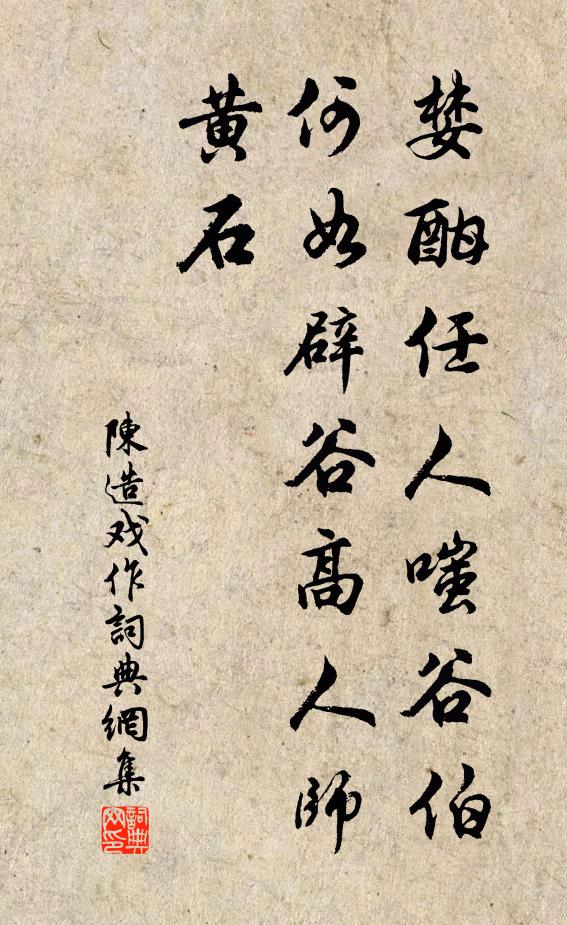 婪酣任人嗤谷伯
何如辟谷高人師
黄石
陳造戏作詞典網集
詞典网印